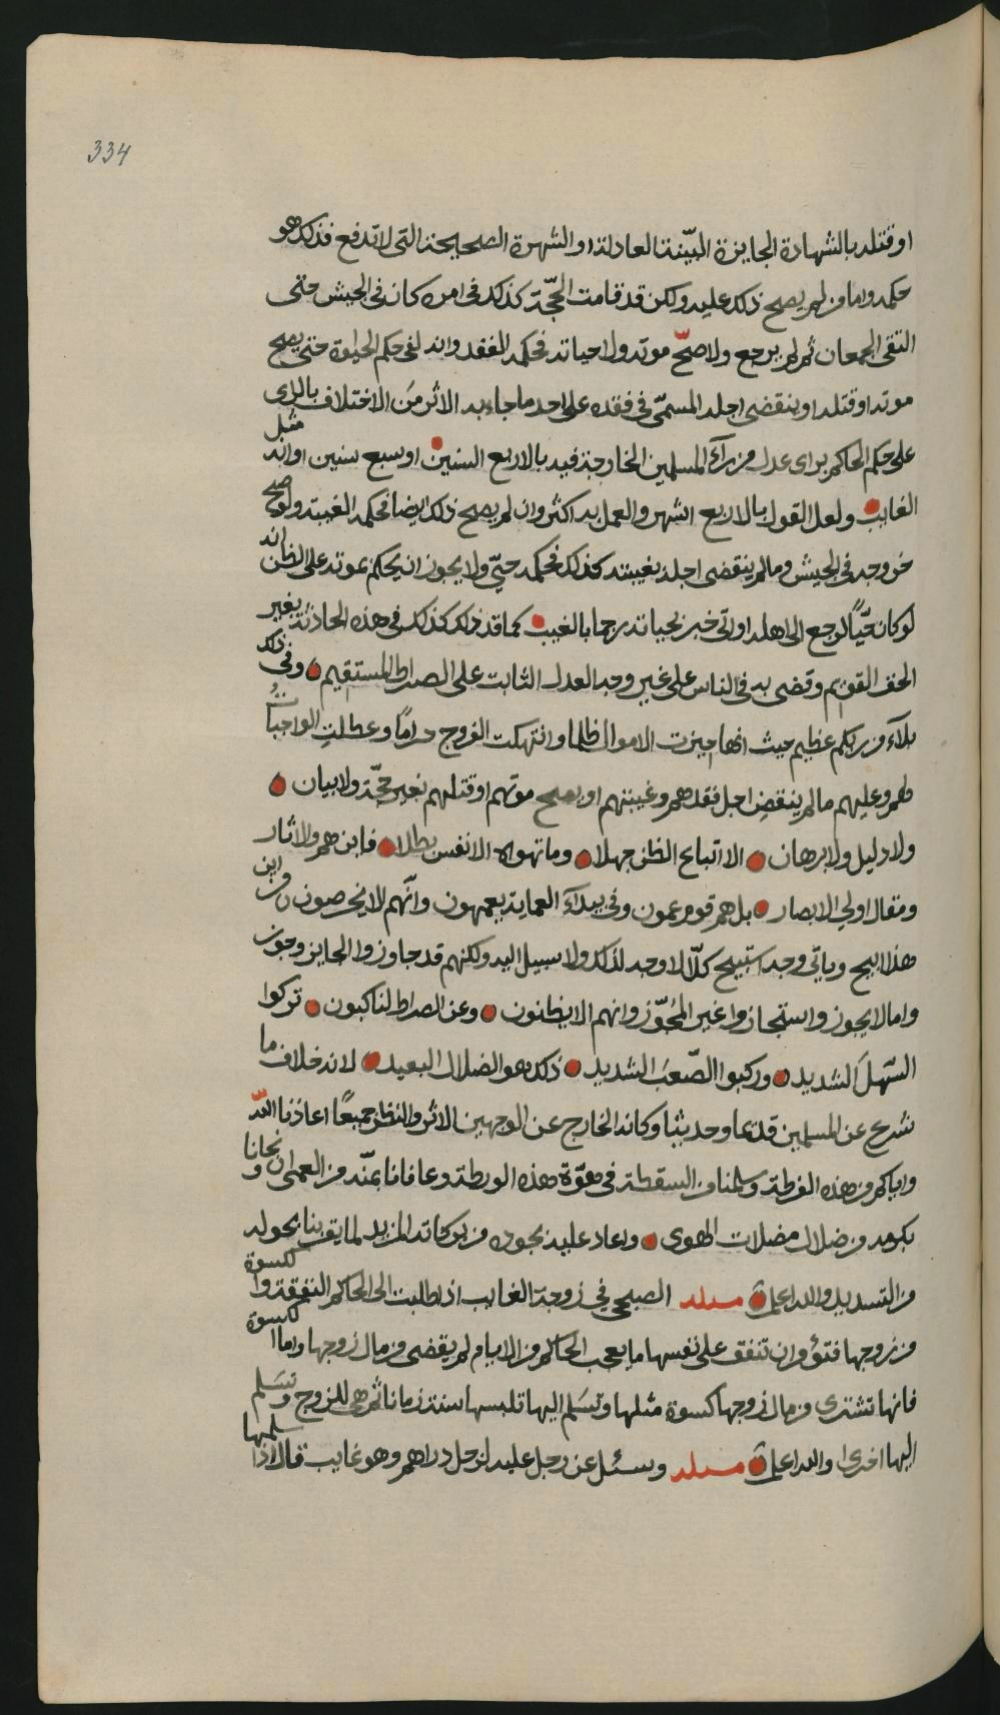 334
او قتله بالشهادة الجايزة البيّنة العادلة او الشهرة الصحيحة التى لا تدفع فذلك هو
حكمه واما من لم يصح ذلك عليه ولكن قد قامت الحجّة كذلك فى امره كانه فى الجيش حتى
التقى الجمعان ثم لم يرجع ولا صحّ موته ولا حياته فحكمه الفقد وانه لفى حكم الحيوة حتى يصح
موته او قتله او ينقضى اجله المسمّى فى فقده على احد ما جاء به الاثر من الاختلاف بالراى
على حكم الحاكم براى عدل من رآء المسلمين الخارجة فيه بالاربع السنين او سبع سنين او انه مثل
الغايب ولعل القول بالاربع اشهر والعمل به اكثر وان لم يصح ذلك ايضا فحكمه الغيبة ولو صح
خروجه فى الجيش وما لم ينقضى اجله بغيبته كذلك فحكمه حىّ ولا يجوز ان يحكم بموته على الظن انه
لو كان حيّاً لرجع الى اهله او اتى خبر بحياته رجما بالغيب كما قد ذلك كذلك فى هذه الحادثة بغير
الحق القويم وقضى به فى الناس على غير وجه العدل الثابت على الصراط المستقيم وفى ذلك
بلآء من ربكم عظيم حيث انها حيزت الاموال ظلما وانتهكت الفروج حراما وعطلت الواجبات
لهم وعليهم ما لم ينقض اجل فقدهم وغيبتهم او يصح موتهم او قتلهم بغير حجّة ولا بيان
ولا دليل ولا برهان الا اتباع الظن جهلا وما تهواه الانفس بطلا فاين هم والاثار
ومقال اولي الابصار بل هم قوم عمون وفى بيدآء العماية يعمهون وانّهم الا يخرصون ومن اين
هذا ابيح وباتى وجه استبيح كلّا لا وجه لذلك ولا سبيل اليه ولكنهم قد جاوزوا الجايز وجوزوا
واما لا يجوز واستجازوا غير المجوّز وانهم الا يظنون وعن الصراط لناكبون تركوا
السّهلَ الشديد وركبوا الصّعبَ الشديد ذلك هو الضلال البعيد لانه خلاف ما
شرع عن المسلمين قديما وحديثا وكانه الخارج عن الوجهين الاثر والنظر جميعًا اعاذنا اللّه
واياكم من هذه الفرطة وسلمنا من السقطة فى هوّة هذه الورطة وعافانا بمنّه من العمى ونجانا
بكرمه من ضلال مضلات الهوى واعاد عليه بجوده من بركاته المزيد لما يقربنا بحوله
من التسديد واللّه اعلم مسئلة الصبحى فى زوجة الغايب اذا طلبت الى الحاكم النفقة والكسوة
من زوجها فتؤمر ان تنفق على نفسها ما يعجب الحاكم من الايام ثم يقضى من مال زوجها واما الكسوة
فانها تشترى من مال زوجها كسوة مثلها وتسلم اليها تلبسها سنة زمانا ثم هى للزوج وتسلم
اليها اخرى واللّه اعلم مسئلة وسئل عن رجل عليه لرجل دراهم وهو غايب قال اذا سلمها